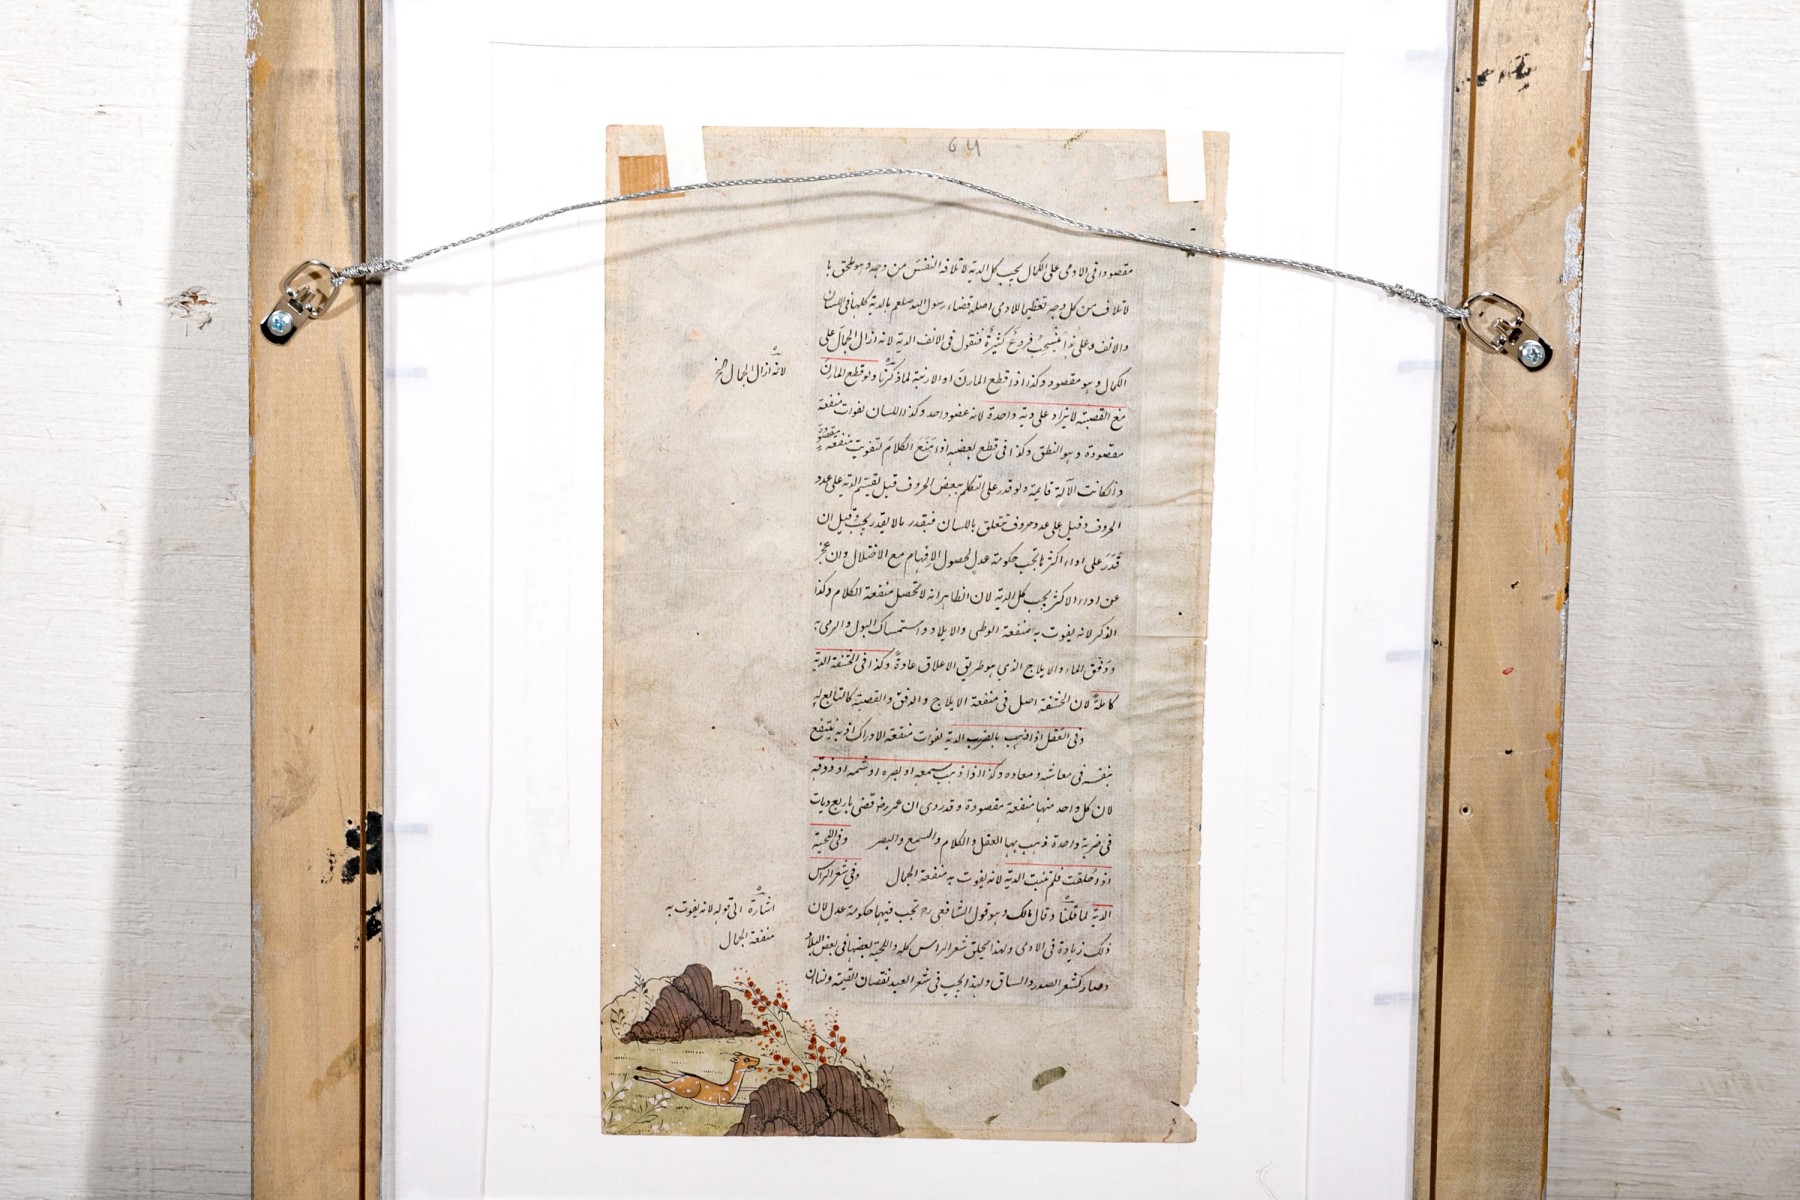 64
مقصودا فى الادمى على الكمال يجب كل الدية لاتلافه النفس من وجه وهو ملحق با
لاتلاف من كل وجه تعظيما للادمى اصله قضاء رسول الله صلعم بالدية كلها فى اللسان
والانف وعلى هذا تنسحب فروع كثيرة فنقول فى الانف الدية لانه ازال الجمال على
الكمال وهو مقصود وكذا اذا قطع المارن او الارنبة لما ذكرنا ولو قطع المارن
لانه ازال الجمال الخ
مع القصبة لا يزاد على دية واحدة لانه عضو واحد وكذا اللسان لفوات منفعة
مقصودة وهو النطق وكذا فى قطع بعضه اذا منع الكلام لتفويت منفعة مقصودة
وانكانت الآلة قايمة ولو قدر على التكلم ببعض الحروف قيل تقسم الدية على عدد
الحروف وقيل على عدد حروف تتعلق باللسان فبقدر ما لا يقدر يجب وقيل ان
قدر على اداء اكثرها تجب حكومة عدل لحصول الافهام مع الاختلال وان عجز
عن اداء الاكثر يجب كل الدية لان الظاهر انه لا تحصل منفعة الكلام وكذا
الذكر لانه يفوت به منفعة الوطى والايلاد واستمساك البول والرمى به
ودفق الماء والايلاج الذي هو طريق الاعلاق عادة وكذا فى الحشفة الدية
كاملة لان الحشفة اصل فى منفعة الايلاج والدفق والقصبة كالتابع له
وفى العقل اذا ذهب بالضرب الدية لفوات منفعة الادراك اذ به ينتفع
بنفسه فى معاشه ومعاده وكذا اذا ذهب سمعه او بصره او شمه او ذوقه
لان كل واحد منها منفعة مقصودة وقد روى ان عمر رضه قضى باربع ديات
فى ضربة واحدة ذهب بها العقل والكلام والسمع والبصر وفى اللحية
اذا حلقت فلم تنبت الدية لانه يفوت به منفعة الجمال وفي شعر الراس
الدية لما قلنا وقال مالك وهو قول الشافعى رح تجب فيهما حكومة عدل لان
اشارة الى قوله لانه يفوت به
منفعة الجمال
ذلك زيادة فى الادمى ولهذا يحلق شعر الراس كله واللحية بعضها فى بعض البلاد
وصار كشعر الصدر والساق ولهذا يجب فى شعر العبد نقصان القيمة ولنا ان